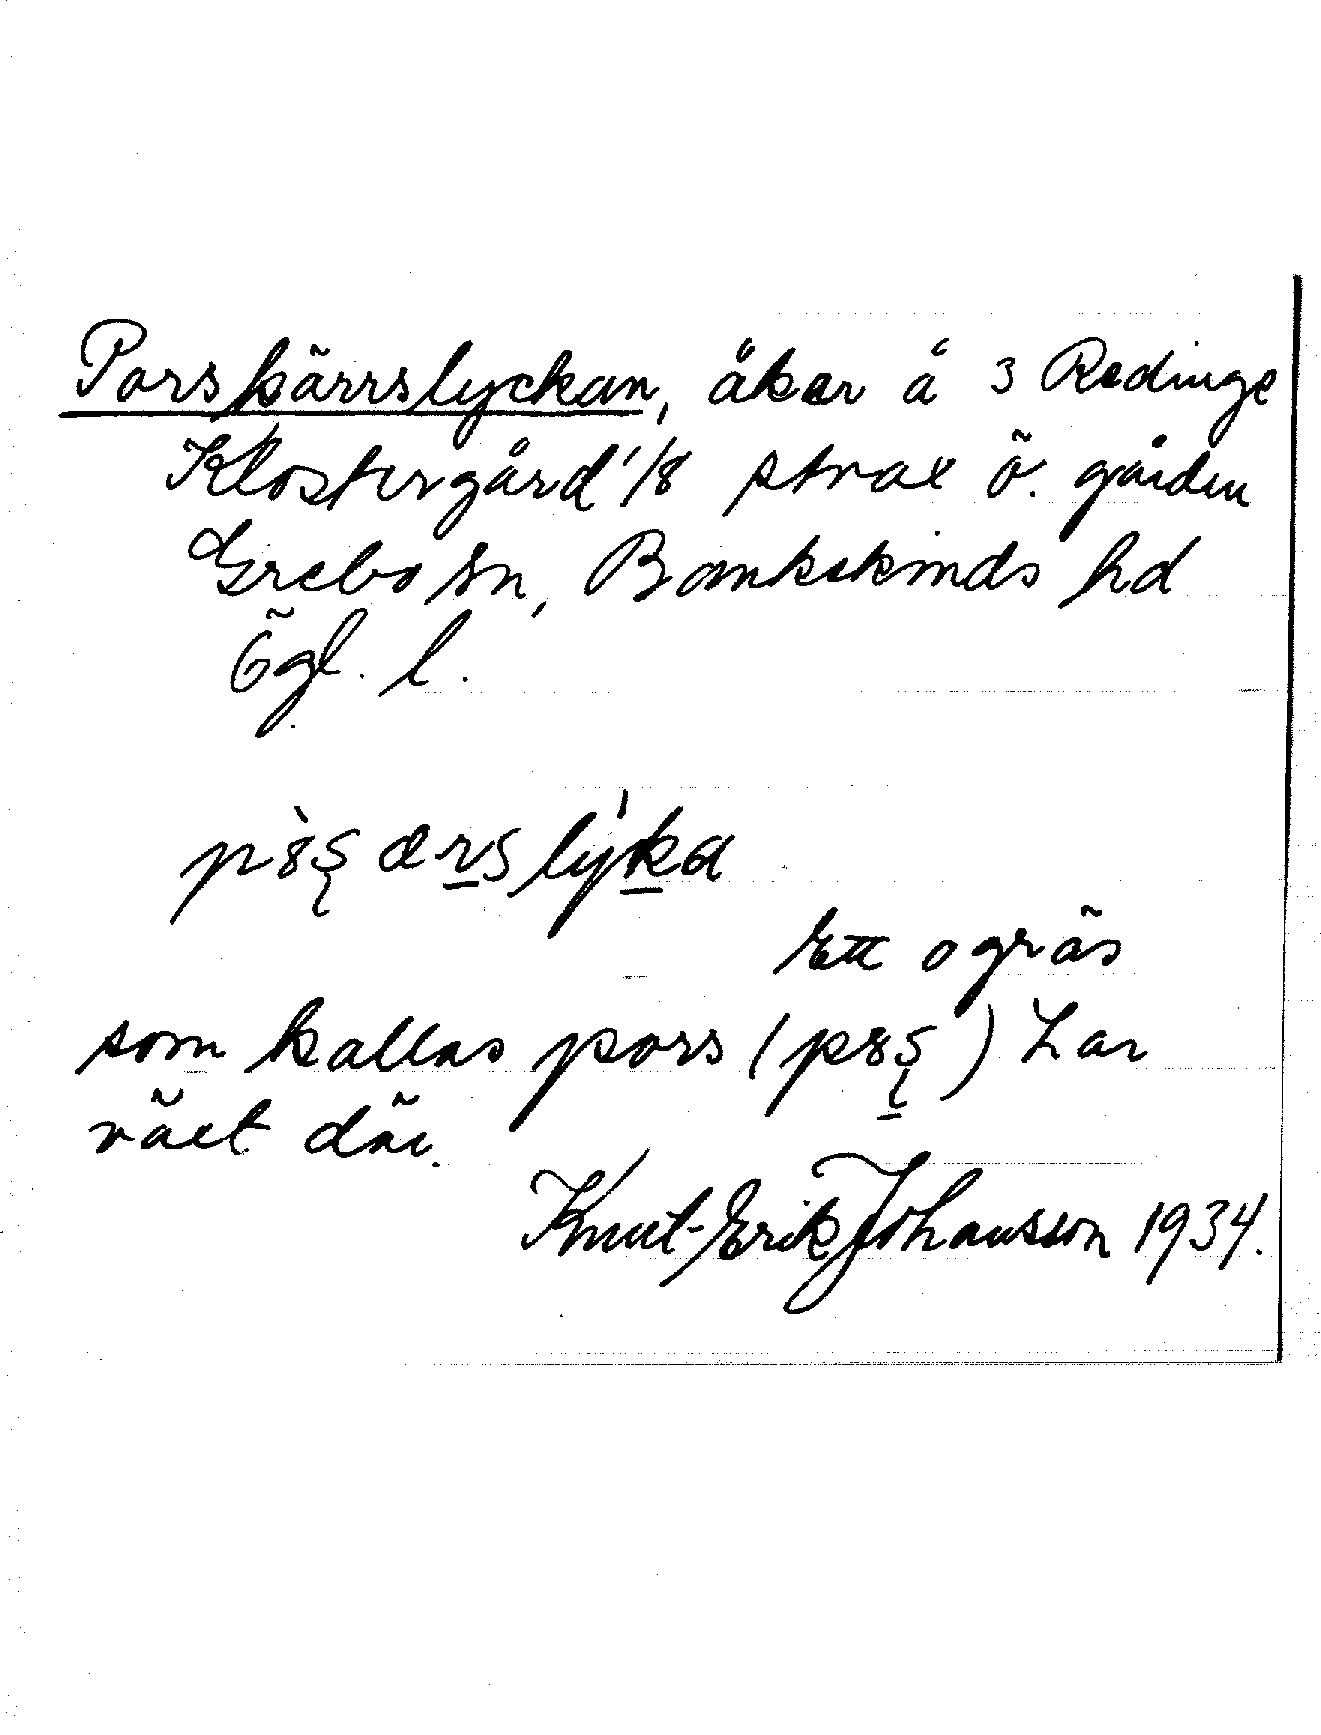 Porskärrslyckan, åker å 3 Redinge
Klostergård 1/8 strax ö. gården
Grebo sn, Bankekinds hd
Ögl. l.
Ett ogräs
som kallas pors (p8ʂ) har
växt där.
Knut-Erik Johansson 1934.